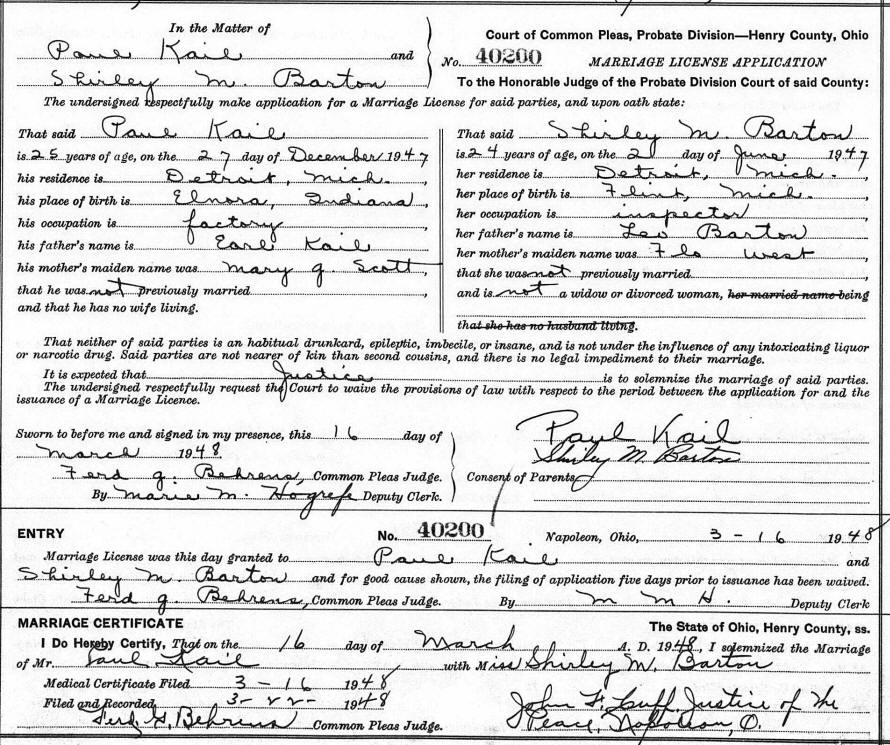 In the Matter of
Paul Kail and
Shirley M. Barton
Court of Common Pleas, Probate Division—Henry County, Ohio
No. 40200 MARRIAGE LICENSE APPLICATION
To the Honorable Judge of the Probate Division Court of said County:
The undersigned respectfully make application for a Marriage License for said parties, and upon oath state:
That said Paul Kail
is 25 years of age, on the 27 day of December 1947
his residence is Detroit, Mich.,
his place of birth is Elnora, Indiana,
his occupation is factory,
his father's name is Earl Kail,
his mother's maiden name was Mary J. Scott,
that he was not previously married,
and that he has no wife living.
That said Shirley M. Barton
is 24 years of age, on the 21 day of June 1947
her residence is Detroit, Mich.,
her place of birth is Flint, Mich.,
her occupation is inspector,
her father's name is Leo Barton,
her mother's maiden name was Flo West,
that she was not previously married,
and is not a widow or divorced woman, her married name being
that she has no husband living.
That neither of said parties is an habitual drunkard, epileptic, imbecile, or insane, and is not under the influence of any intoxicating liquor
or narcotic drug. Said parties are not nearer of kin than second cousins, and there is no legal impediment to their marriage.
It is expected that Justice is to solemnize the marriage of said parties.
The undersigned respectfully request the Court to waive the provisions of law with respect to the period between the application for and the
issuance of a Marriage Licence.
Sworn to before me and signed in my presence, this 16 day of
March 1948.
Ferd G. Behrens, Common Pleas Judge.
By Marie M. Hogrefe Deputy Clerk.
Paul Kail
Shirley M. Barton
Consent of Parents
ENTRY No. 40200 Napoleon, Ohio, 3-16 1948
Marriage License was this day granted to Paul Kail and
Shirley M. Barton and for good cause shown, the filing of application five days prior to issuance has been waived.
Ferd G. Behrens, Common Pleas Judge. By M M H. Deputy Clerk
MARRIAGE CERTIFICATE The State of Ohio, Henry County, ss.
I Do Hereby Certify, That on the 16 day of March A. D. 1948, I solemnized the Marriage
of Mr. Paul Kail with Miss Shirley M. Barton
Medical Certificate Filed 3-16 1948
Filed and Recorded 3-22- 1948
Ferd G. Behrens Common Pleas Judge.
John F. Justice of The
Peace, Napoleon, O.